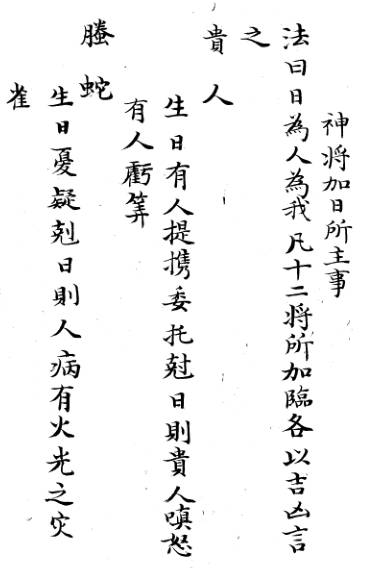 神将加日所主事
法曰日為人為我凡十二将所加臨各以吉凶言
之
貴人
生日有人提携委托尅日則貴人嗔怒
有人虧筭
螣蛇
生日憂疑尅日則人病有火光之灾
雀